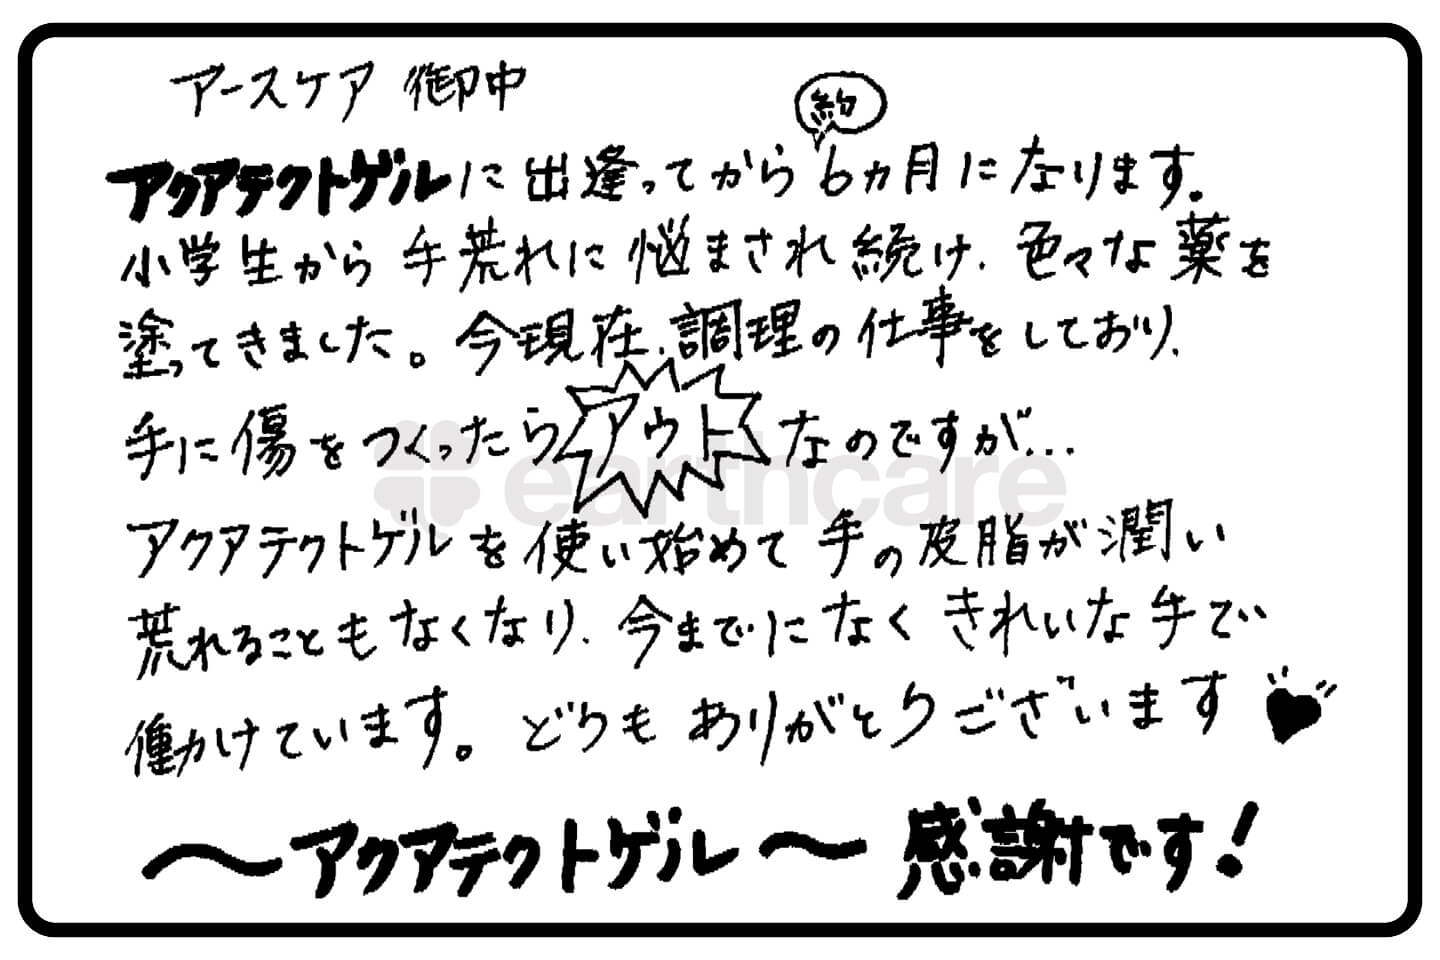 アースケア 御中
アクアテクトゲルに出逢ってから約6ヵ月になります。
小学生から手荒れに悩まされ続け、色々な薬を
塗ってきました。今現在、調理の仕事をしており、
手に傷をつくったらアウトなのですが…
earthcare
アクアテクトゲルを使い始めて手の皮脂が潤い
荒れることもなくなり、今までになくきれいな手で
働かけています。どうもありがとうございます♥
〜アクアテクトゲル〜 感謝です!